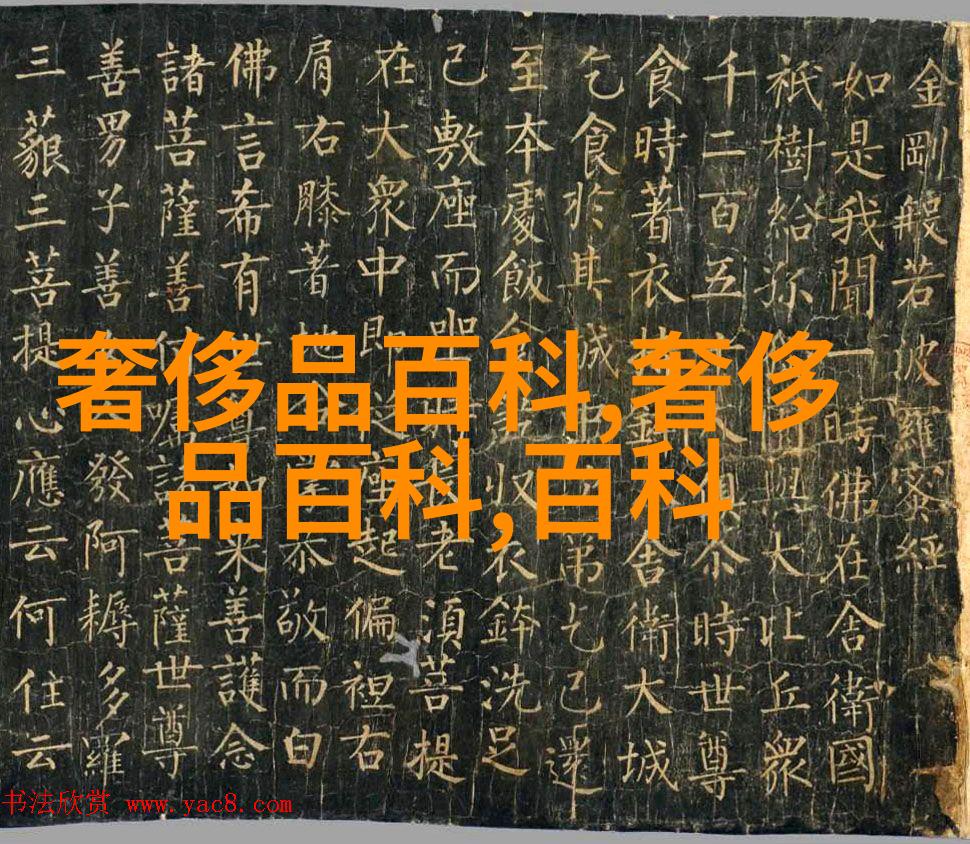 金剛般若波羅蜜經
如是我聞一時佛在舍衛國
祇樹給孤園與大比丘眾
千二百五人俱尒時世尊
食時著衣持鉢舍衛大城
乞食於其城中弟乞已還
至本處飯食訖収衣鉢洗足
已敷座而坐長老須菩提
在大衆中即從座起偏袒右
肩右膝著地掌恭敬而白
佛言希有世尊如来善護念
諸菩薩善付囑諸菩薩世尊
善男子善發阿耨多羅
三藐三菩提心應云何住云
奢侈品百科,奢侈
品百科,百科
书法欣赏 www.yac8.com